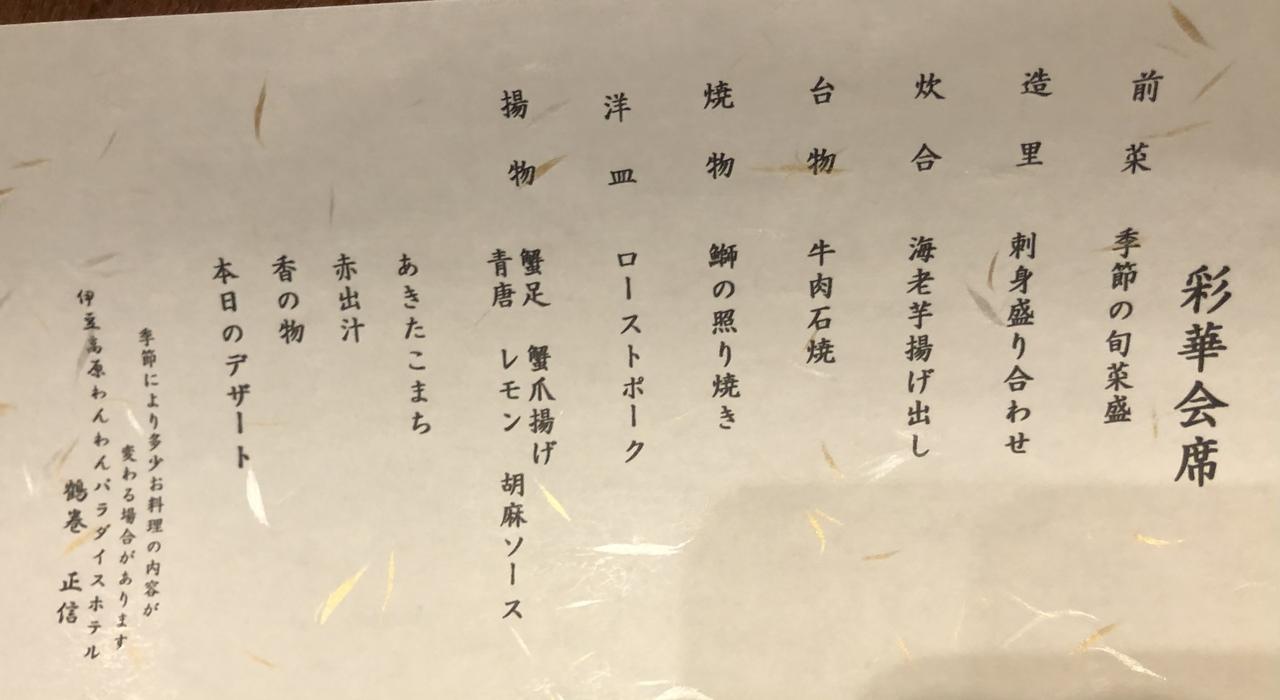 彩華会席
前菜 季節の旬菜盛
造里 刺身盛り合わせ
炊合 海老芋揚げ出し
台物 牛肉石焼
焼物 鰤の照り焼き
洋皿 ローストポーク
揚物 蟹足 蟹爪揚げ
青唐 レモン 胡麻ソース
あきたこまち
赤出汁
香の物
本日のデザート
季節により多少お料理の内容が
変わる場合があります
伊豆高原わんわんパラダイスホテル
鶴巻 正信